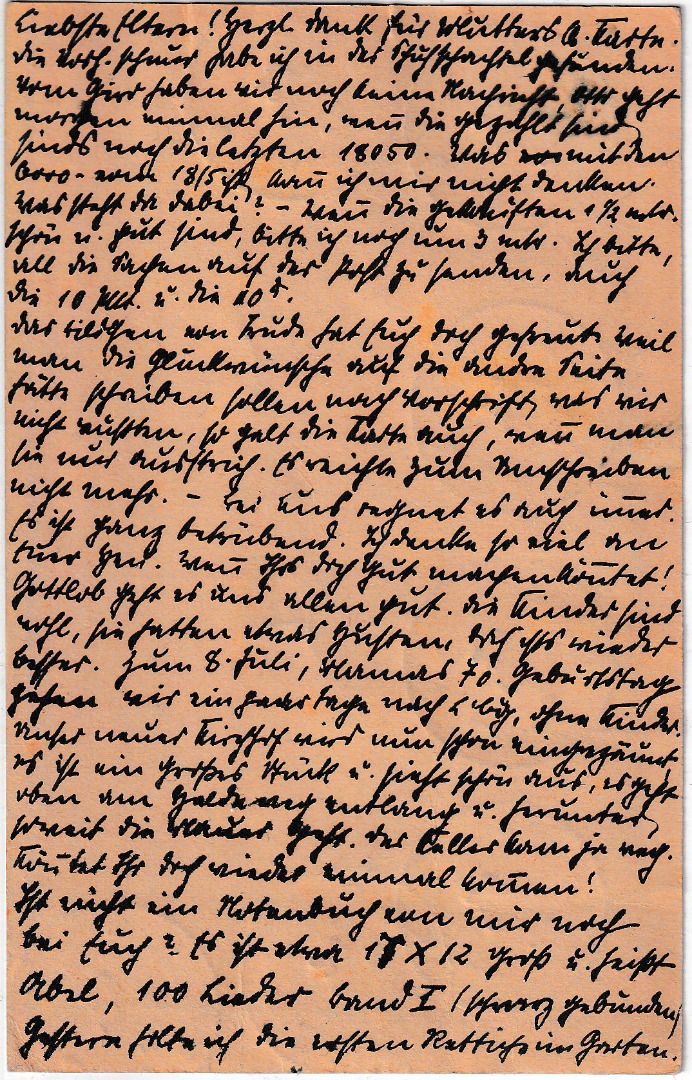 Liebste Eltern! Herzl. Dank für Mutters B. Karte.
Die Vorh. schnur habe ich in der Schuhschachtel gefunden.
Vom Giro haben wir noch keine Nachricht, Otto geht
morgen einmal hin, weñ die gezahlt sind,
sinds noch die letzten 18050. Was mit den
6000 - vom 18/5 ist, kañ ich mir nicht denken.
Was steht da dabei? - Weñ die gekauften 1 ½ mtr.
schön u. gut sind, bitte ich noch um 3 mtr. Ich bitte,
all die Sachen auf der Post zu senden, auch
die 10 Mtr. u. die
Das Bildchen von Trude hat Euch doch gefreut. Weil
man die Glückwünsche auf die andre Seite
hätte schreiben sollen nach Vorschrift, was wir
nicht wußten, so galt die Karte auch, weñ man
sie nur ausstrich. Es reichte zum Umschreiben
nicht mehr. - Bei uns regnet es auch im̄er.
Es ist ganz betrübend. Ich denke so viel an
Euer Heu. Weñ Ihrs doch gut machen köñtet!
Gottlob geht es uns allen gut. Die Kinder sind
wohl, sie hatten etwas Husten, doch ists wieder
besser. Zum 8. Juli, Mamas 70. Geburtstag
gehen wir ein paar Tage nach L'bg, ohne Kinder.
Unser neuer Kirchhof wird nun schon eingezäunt
es ist ein großes Stück u. sieht schön aus, es geht
oben am entlang u. herunter,
soweit die Mauer geht. Der Keller kam ja weg.
Köñtet Ihr doch wieder einmal kom̄en!
Ist nicht ein Notenbuch von mir noch
bei Euch? Es ist etwa X 12 groß u. heißt
Abel, 100 Lieder Band I (schwarz gebunden)
Gestern holte ich die ersten Rettiche im Garten.